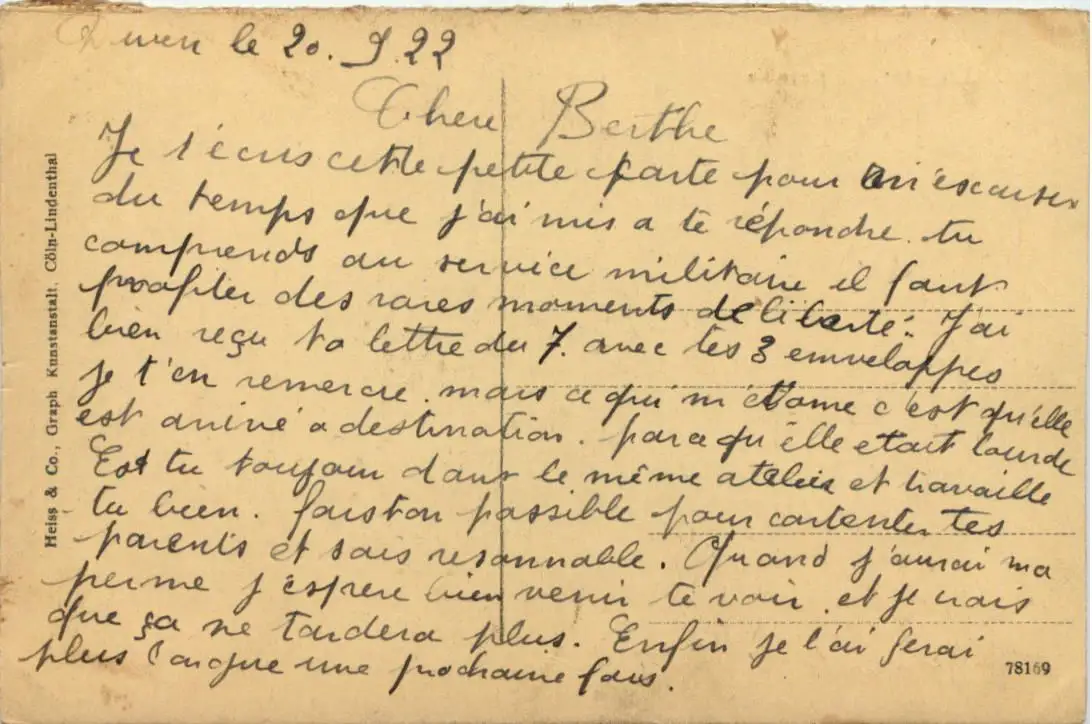 Duren le 20.9.22
Chere Berthe
Je t'écris cette petite carte pour m'escuser
du temps que j'ai mis a te répondre. tu
comprends au service militaire il faut
profiter des rares moments de liberté. J'ai
bien reçu ta lettre du 7. avec les 3 emveloppes
je t'en remercie. mais ce qui m'étone c'est qu'elle
est arrivé a destination. parce qu'elle etait lourde
Est tu toujour dans le même atelier et travaille
tu bien. fais ton possible pour contenter tes
parents et sois resonnable. Quand j'aurai ma
perme j'espere bien venir te voir. et je crois
que ça ne tardera plus. Enfin je l'ai ferai
plus longue une prochaine fois.
Heiss & Co., Graph Kunstanstalt, Cöln-Lindenthal
78169